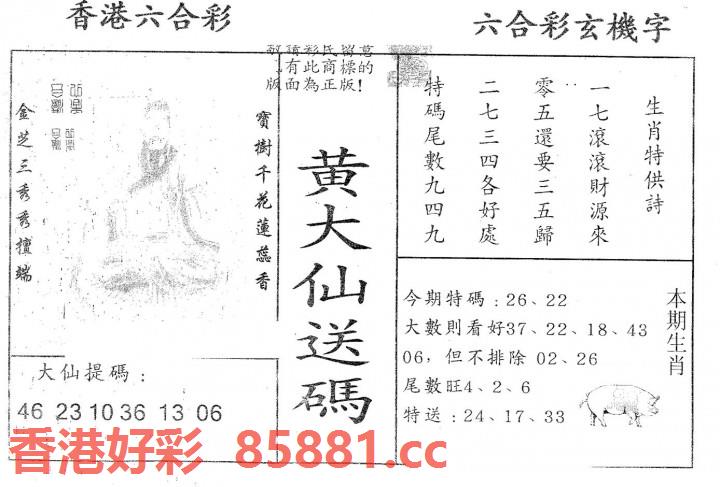 香港六合彩
六合彩玄機字
敬請彩民留意
，有此商標的
版面為正版！
金芝三秀秀擅端
寶樹千花蓮蕊香
黃大仙送碼
大仙提碼：
46 23 10 36 13 06
生肖特供詩
一七滾滾財源來
零五還要三五歸
二七三四各好處
特碼尾數九四九
本期生肖
今期特碼：26、22
大數則看好37、22、18、43
06，但不排除 02、26
尾數旺4、2、6
特送：24、17、33
香港好彩 85881.cc